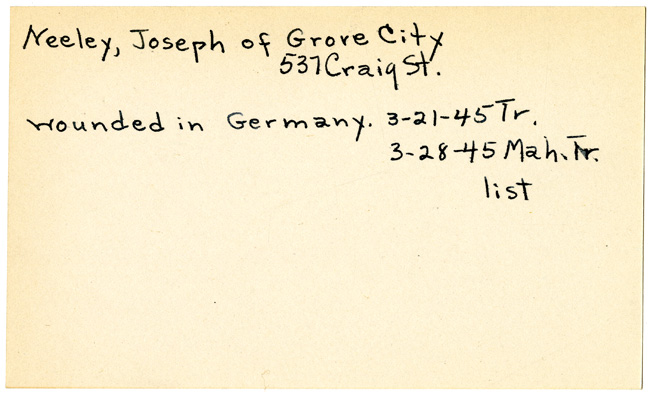 Neeley, Joseph of Grove City
537 Craig St.
wounded in Germany. 3-21-45 Tr.
3-28-45 Mah. Tr.
list